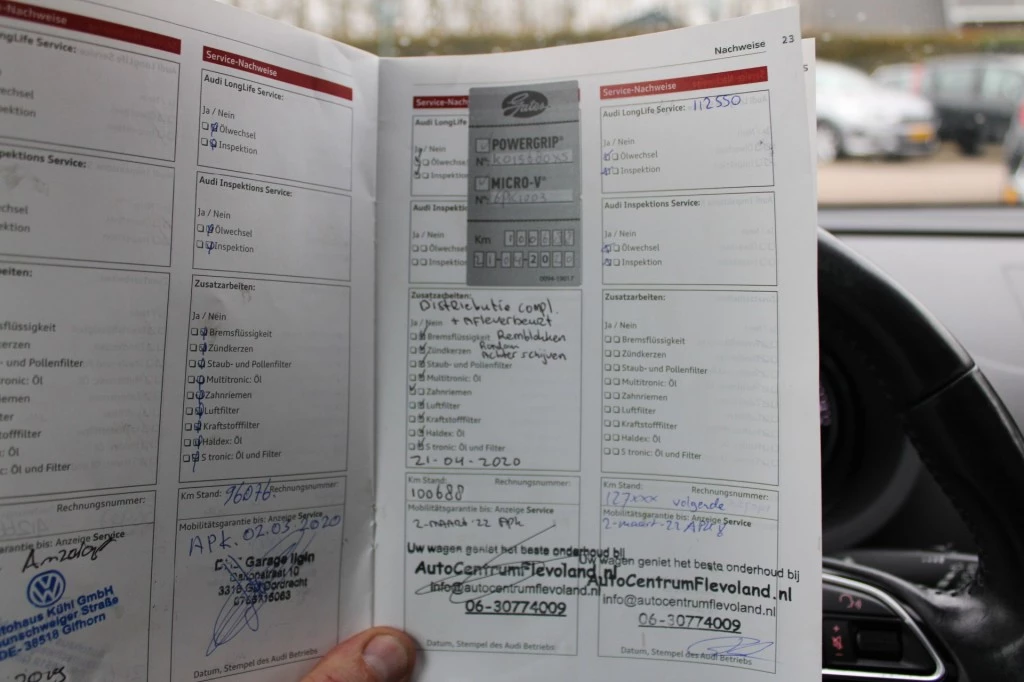 -Nachweise
LongLife Service:
chsel
ektion
nspektions Service:
chsel
ektion
eiten:
msflüssigkeit
kerzen
ub- und Pollenfilter
tronic: Öl
riemen
ilter
stofffilter
x: Öl
nic: Öl und Filter
Rechnungsnummer:
garantie bis: Anzeige Service
utohaus Kühl GmbH
unschweiger Straße
DE- 38518 Gifhorn
Service-Nachweise
Audi LongLife Service:
Ja / Nein
Ölwechsel
Inspektion
Audi Inspektions Service:
Ja / Nein
Ölwechsel
Inspektion
Zusatzarbeiten:
Ja / Nein
Bremsflüssigkeit
Zündkerzen
Staub- und Pollenfilter
Multitronic: Öl
Zahnriemen
Luftfilter
Kraftstofffilter
Haldex: Öl
S tronic: Öl und Filter
Km Stand: 96076 Rechnungsnummer:
Mobilitätsgarantie bis: Anzeige Service
APK. 02.03.2020
Garage Ilgin
Datum, Stempel des Audi Betriebs
Nachweise 23
Service-Nach
Audi LongLife
Ja / Nein
Ölwechsel
Inspekt
Audi Inspekt
Ja / Nein
Ölwechsel
Inspektion
Gates
POWERGRIP®
Nº
MICRO-V®
Nº
Km
21-04-2020
Zusatzarbeiten:
Distributie compl.
Ja / Nein
Bremsflüssigkeit Remblokken
Zündkerzen Rondom
achter schijven
Staub- und Pollenfilter
Multitronic: Öl
Zahnriemen
Luftfilter
Kraftstofffilter
Haldex: Öl
S tronic: Öl und Filter
21-04-2020
Km Stand: Rechnungsnummer:
100688
Mobilitätsgarantie bis: Anzeige Service
2-maart '22 APK
Uw wagen geniet het beste onderhoud bij
AutoCentrumFlevoland.nl
info@autocentrumflevoland.nl
06-30774009
Datum, Stempel des Audi Betriebs
Service-Nachweise
Audi LongLife Service: 112550
Ja / Nein
Ölwechsel
Inspektion
Audi Inspektions Service:
Ja / Nein
Ölwechsel
Inspektion
Zusatzarbeiten:
Ja / Nein
Bremsflüssigkeit
Zündkerzen
Staub- und Pollenfilter
Multitronic: Öl
Zahnriemen
Luftfilter
Kraftstofffilter
Haldex: Öl
S tronic: Öl und Filter
Km Stand: Rechnungsnummer:
127xxx volgende
Mobilitätsgarantie bis: Anzeige Service
2-maart-22
Uw wagen geniet het beste onderhoud bij
AutoCentrumFlevoland.nl
info@autocentrumflevoland.nl
06-30774009
Datum, Stempel des Audi Betriebs